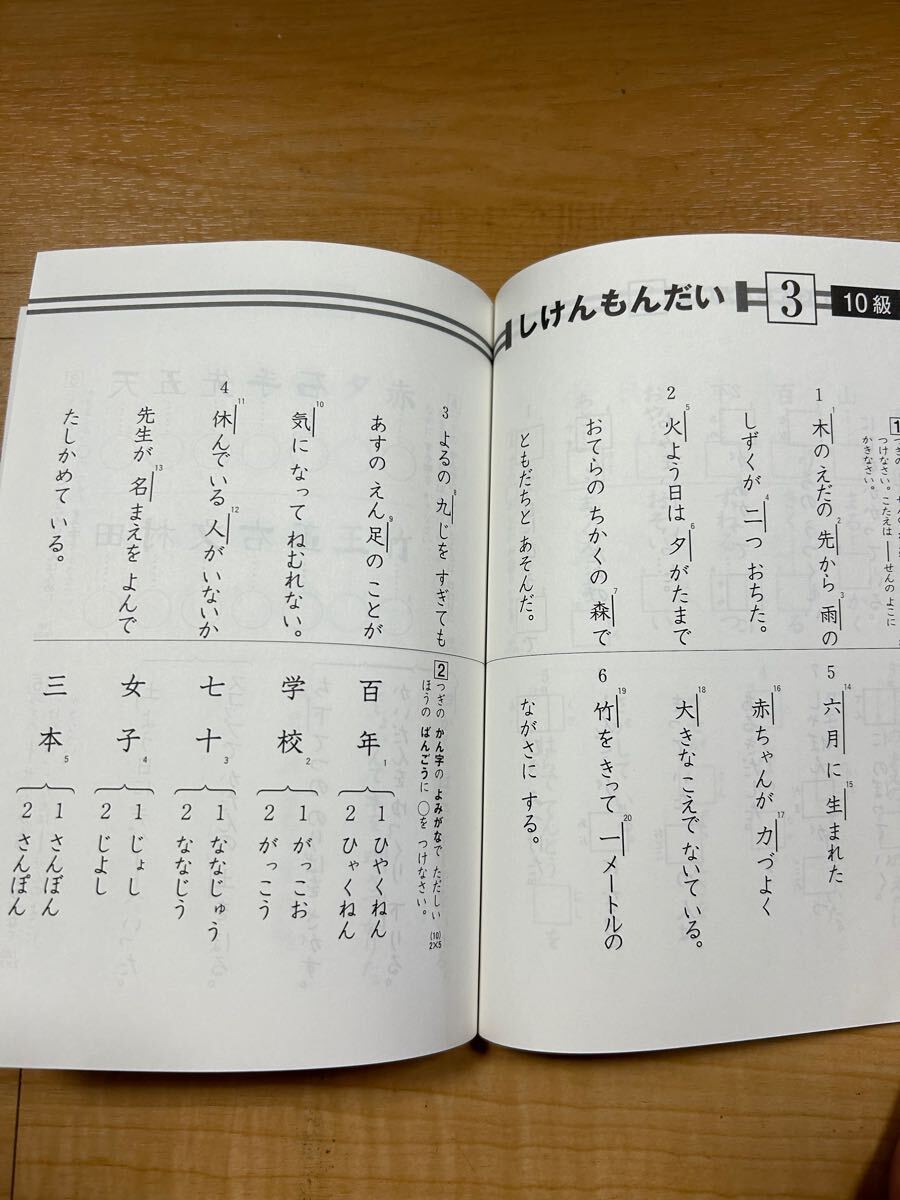 10級
3
しけんもんだい
1
つけなさい。こたえは―せんのよこに
かきなさい。
1 木のえだの 先から 雨の
しずくが 二つ おちた。
2 火よう日は 夕がたまで
おてらの ちかくの 森で
ともだちと あそんだ。
5 六月に 生まれた
赤ちゃんが 力づよく
大きなこえで ないている。
6 竹を きって 一メートルの
ながさに する。
3 よるの 九じを すぎても
あすの えん足の ことが
気に なって ねむれない。
4 休んでいる 人が いないか
先生が 名まえを よんで
たしかめて いる。
2 つぎの かん字の よみがなで ただしい
ほうの ばんごうに ○を つけなさい。
(10)
2×5
百年 1
1 ひやくねん
2 ひゃくねん
学校 2
1 がっこお
2 がっこう
七十 3
1 ななじゅう
2 ななじう
女子 4
1 じょし
2 じよし
三本 5
1 さんぼん
2 さんぽん